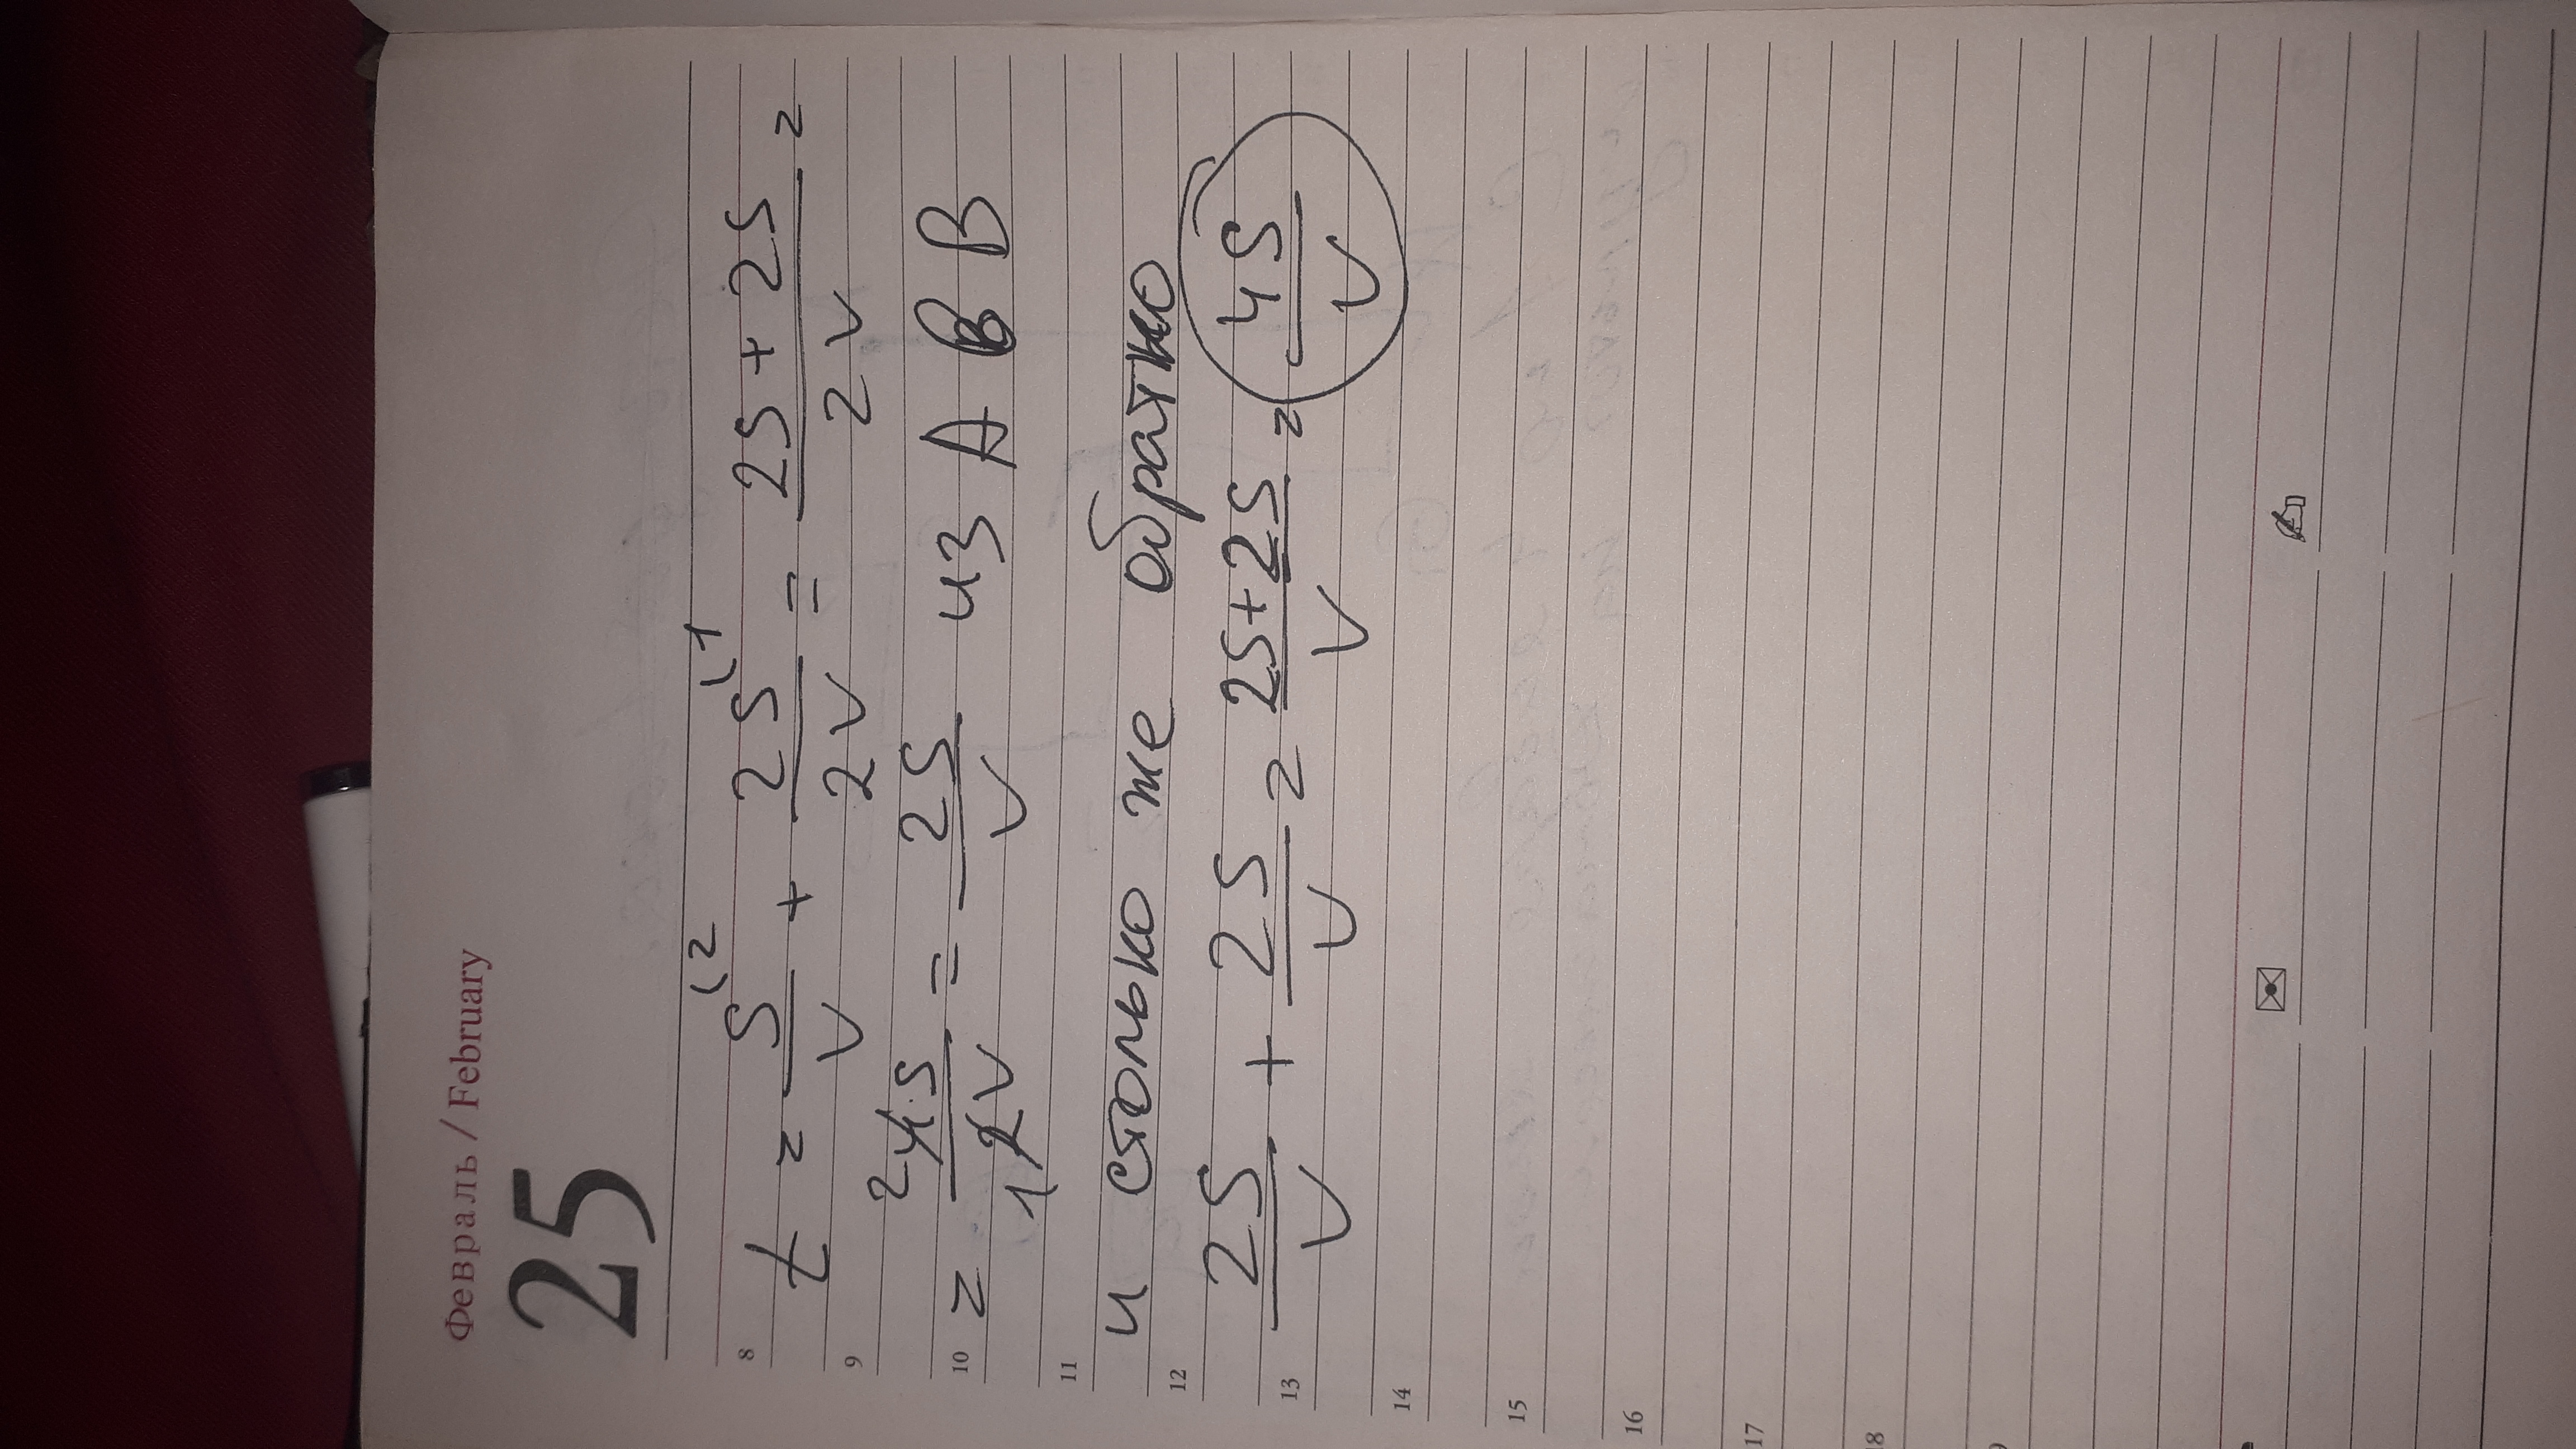 Февраль / February
25
8 t = S/V (2 + 2S/2V (1 = 2S + 2S/2V =
9
10 = 2 4·S/1 2V = 2S/V из А В В
11
и столько же обратно
12
2S/V + 2S/V = 2S+2S/V = 4S/V
13
14
15
16
17
18